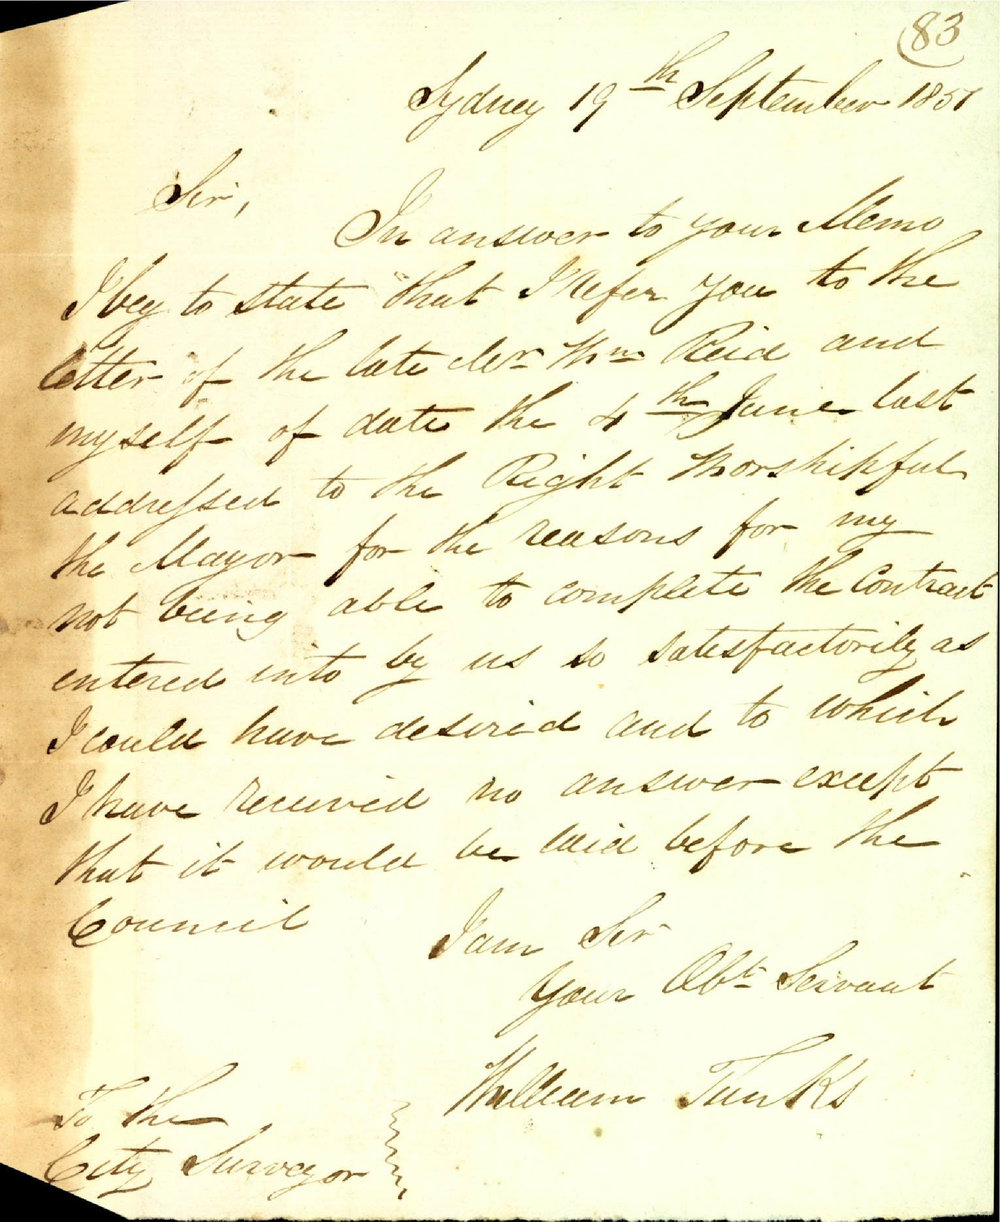 83
Sydney 19th September 1851
Sir,
In answer to your Memo
I beg to state that I refer you to the
letter of the late Mr Wm Reid and
myself of date the 4th June last
addressed to the Right Worshipful
the Mayor for the reasons for my
not being able to complete the Contract
entered into by us so satisfactorily as
I could have desired and to which
I have received no answer except
that it would be laid before the
Council
I am Sir
Your Obt Servant
William Tunks
To the
City Surveyor